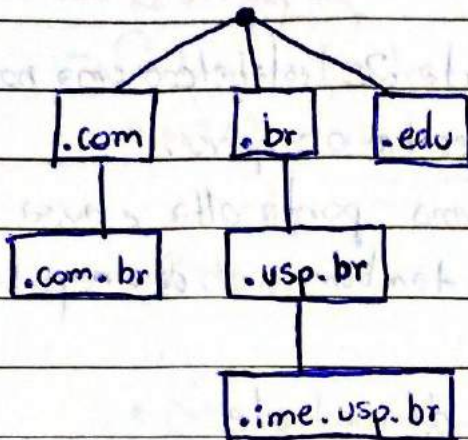 .com .br .edu
.com.br .usp.br
.ime.usp.br